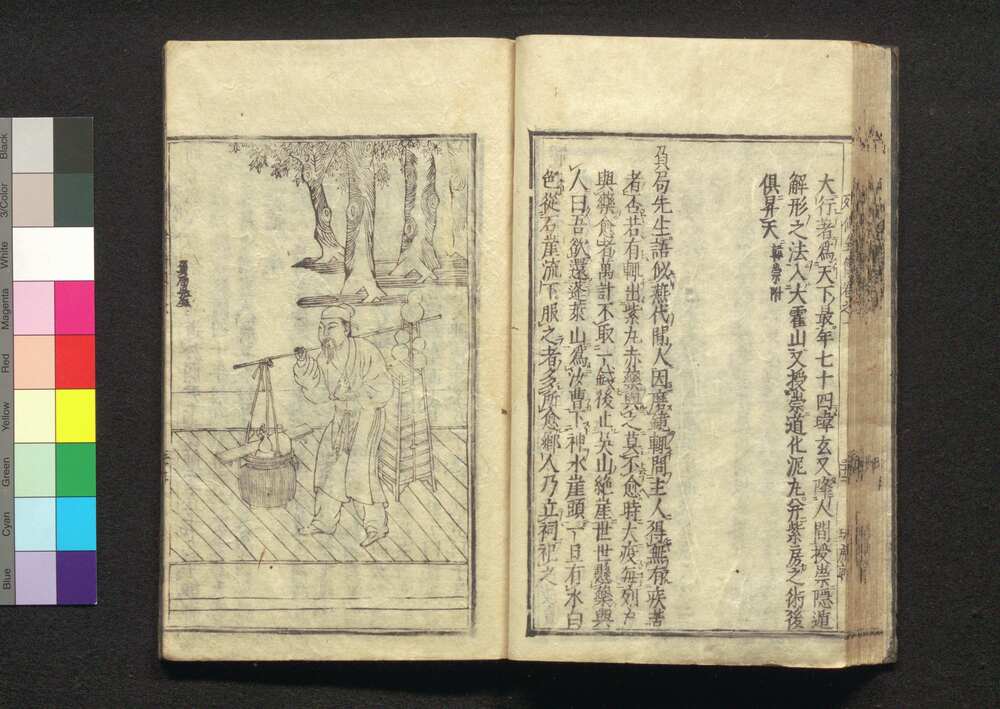 大行者為天下最年七十四暐玄又降人間授崇隱遁
解形之法入大霍山又授崇道化泥丸分紫房之術後
俱昇天 韓崇附
負局先生語似燕代間人因磨鏡輒問主人得無有疾苦
者否若有輒出紫丸赤藥與之莫不愈時大疫每列戶
與藥愈者萬計不取一錢後止吳山絶崖世世懸藥與
人曰吾欲還蓬萊山為汝曹下神水崖頭一旦有水白
色從石崖流下服之者多所愈鄰人乃立祠祀之
Black
3/Color
White
Magenta
Red
Yellow
Green
Cyan
Blue